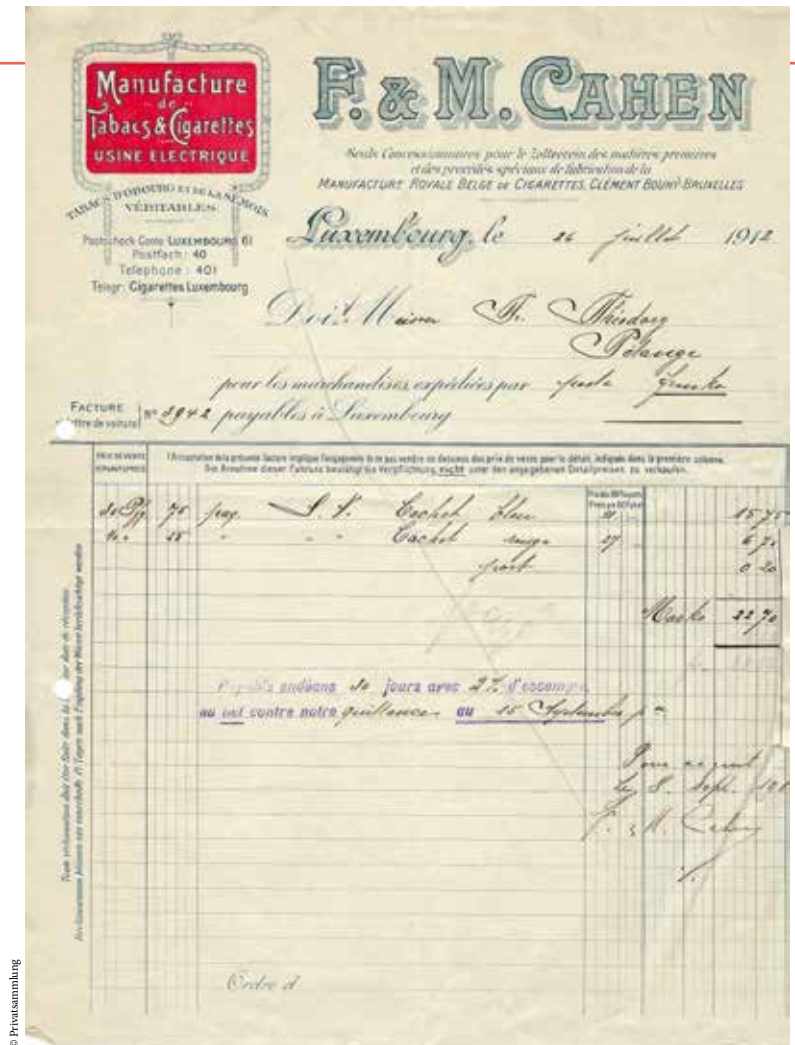 Manufacture
de
Tabacs & Cigarettes
USINE ELECTRIQUE
TABACS D'OBOURG ET DE LA SEMOIS
VÉRITABLES
Postscheck-Conto LUXEMBOURG 61
Postfach: 40
Telephone: 401
Telegr: Cigarettes Luxembourg
F. & M. CAHEN
Seuls Concessionnaires pour le Zollverein des matières premières
et des procédés spéciaux de fabrication de la
MANUFACTURE ROYALE BELGE DE CIGARETTES, CLÉMENT BOUHY-BRUXELLES
Luxembourg, le 26 juillet 1912
Doit Monsieur
Pétange
pour les marchandises expédiées par poste franko
FACTURE
lettre de voiture
N° 8942 payables à Luxembourg
PRIX DE VENTE
l'Acceptation de la présente facture implique l'engagement de ne pas vendre au dessous des prix de vente pour le détail, indiqués dans la première colonne.
Die Annahme dieser Faktura bestätigt die Verpflichtung nicht unter den angegebenen Detailpreisen zu verkaufen.
75 paq. Cachet bleu 21 15 75
Cachet rouge 27 6 75
port 0 20
Marks 22 70
Payable endéans 30 jours avec 2% d'escompte
au net contre notre quittance au 15 Septembre
Pour acquit
8. Sept.
F. & M. Cahen
Ordre d
© Privatsammlung